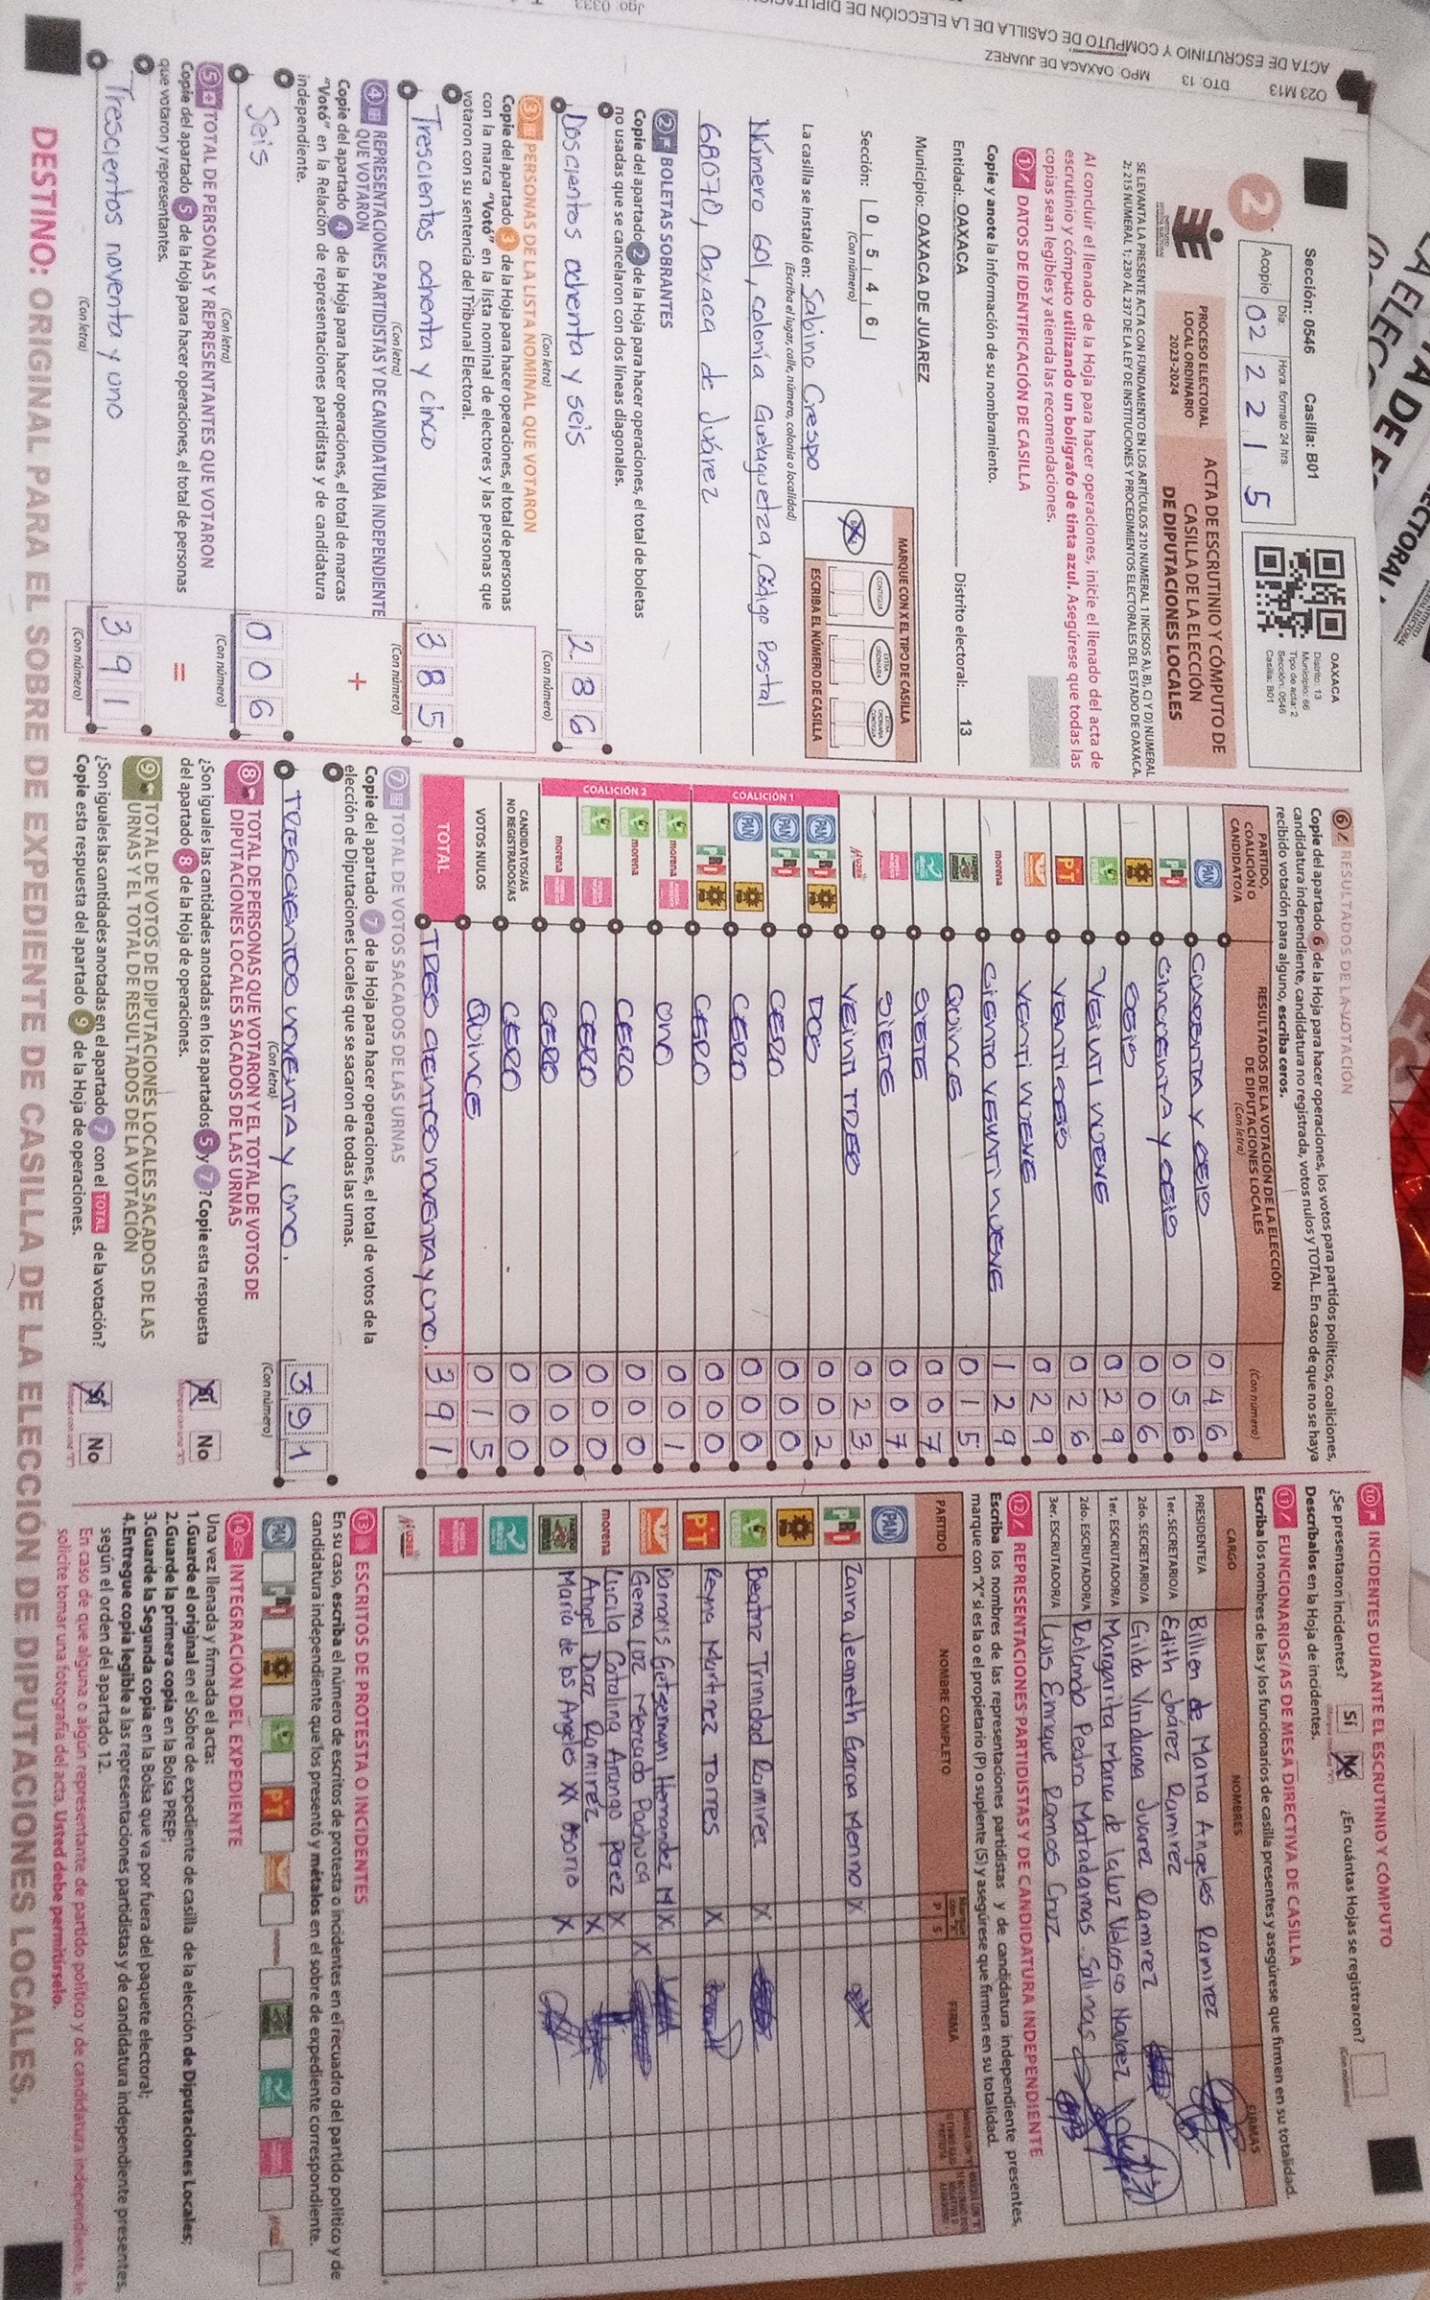 ACTA DE ESCRUTINIO Y CÓMPUTO DE CASILLA DE LA ELECCIÓN DE
O23 M13 DTO. 13 MPO. OAXACA DE JUAREZ
Sección: 0546 Casilla: B01
2
Acopio
Día
Hora: formato 24 hrs.
02 2215
OAXACA
Distrito: 13
Municipio: 66
Tipo de acta: 2
Sección: 0546
Casilla: B01
PROCESO ELECTORAL
LOCAL ORDINARIO
2023-2024
ACTA DE ESCRUTINIO Y CÓMPUTO DE
CASILLA DE LA ELECCIÓN
DE DIPUTACIONES LOCALES
SE LEVANTA LA PRESENTE ACTA CON FUNDAMENTO EN LOS ARTÍCULOS 210 NUMERAL 1 INCISOS A), B), C) Y D) NUMERAL
2; 215 NUMERAL 1; 230 AL 237 DE LA LEY DE INSTITUCIONES Y PROCEDIMIENTOS ELECTORALES DEL ESTADO DE OAXACA.
Al concluir el llenado de la Hoja para hacer operaciones, inicie el llenado del acta de
escrutinio y cómputo utilizando un bolígrafo de tinta azul. Asegúrese que todas las
copias sean legibles y atienda las recomendaciones.
1 DATOS DE IDENTIFICACIÓN DE CASILLA
Copie y anote la información de su nombramiento.
Entidad: OAXACA Distrito electoral: 13
Municipio: OAXACA DE JUAREZ
Sección: 0 5 4 6
(Con número)
MARQUE CON X EL TIPO DE CASILLA
CONTIGUA
ESCRIBA EL NÚMERO DE CASILLA
La casilla se instaló en: Sabino Crespo
(Escriba el lugar, calle, número, colonia o localidad)
Número 601, colonia Guelaguetza, Código Postal
68070, Oaxaca de Juárez
2 BOLETAS SOBRANTES
Copie del apartado 2 de la Hoja para hacer operaciones, el total de boletas
no usadas que se cancelaron con dos líneas diagonales.
Doscientos ochenta y seis 286
(Con letra) (Con número)
3 PERSONAS DE LA LISTA NOMINAL QUE VOTARON
Copie del apartado 3 de la Hoja para hacer operaciones, el total de personas
con la marca "Votó" en la lista nominal de electores y las personas que
votaron con su sentencia del Tribunal Electoral.
Trescientos ochenta y cinco 385
(Con letra) (Con número)
4 REPRESENTACIONES PARTIDISTAS Y DE CANDIDATURA INDEPENDIENTE
QUE VOTARON
Copie del apartado 4 de la Hoja para hacer operaciones, el total de marcas
"Votó" en la Relación de representaciones partidistas y de candidatura
independiente.
Seis 006
(Con letra) (Con número)
5 TOTAL DE PERSONAS Y REPRESENTANTES QUE VOTARON
Copie del apartado 5 de la Hoja para hacer operaciones, el total de personas
que votaron y representantes.
Trescientos noventa y uno 391
(Con letra) (Con número)
6 RESULTADOS DE LA VOTACIÓN
Copie del apartado 6 de la Hoja para hacer operaciones, los votos para partidos políticos, coaliciones,
candidatura independiente, candidatura no registrada, votos nulos y TOTAL. En caso de que no se haya
recibido votación para alguno, escriba ceros.
PARTIDO,
COALICIÓN O
CANDIDATO/A
RESULTADOS DE LA VOTACIÓN DE LA ELECCIÓN
DE DIPUTACIONES LOCALES
(Con letra)
(Con número)
PAN CUARENTA Y SEIS 046
PRI CINCUENTA Y SEIS 056
PRD SEIS 006
VERDE VEINTI NUEVE 029
PT VEINTI SEIS 026
VEINTI NUEVE 029
morena CIENTO VEINTI NUEVE 129
QUINCE 015
SIETE 007
SIETE 007
VEINTI TRES 023
COALICIÓN 1
PAN PRI PRD DOS 002
PAN PRI CERO 000
PAN PRD CERO 000
PRI PRD CERO 000
COALICIÓN 2
VERDE morena UNO 001
VERDE morena CERO 000
VERDE CERO 000
morena CERO 000
CANDIDATOS/AS
NO REGISTRADOS/AS CERO 000
VOTOS NULOS QUINCE 015
TOTAL TRESCIENTOS NOVENTA Y UNO. 391
7 TOTAL DE VOTOS SACADOS DE LAS URNAS
Copie del apartado 7 de la Hoja para hacer operaciones, el total de votos de la
elección de Diputaciones Locales que se sacaron de todas las urnas.
TRESCIENTOS NOVENTA Y UNO. 391
(Con letra) (Con número)
8 TOTAL DE PERSONAS QUE VOTARON Y EL TOTAL DE VOTOS DE
DIPUTACIONES LOCALES SACADOS DE LAS URNAS
¿Son iguales las cantidades anotadas en los apartados 5 y 7? Copie esta respuesta
del apartado 8 de la Hoja de operaciones.
Sí No
9 TOTAL DE VOTOS DE DIPUTACIONES LOCALES SACADOS DE LAS
URNAS Y EL TOTAL DE RESULTADOS DE LA VOTACIÓN
¿Son iguales las cantidades anotadas en el apartado 7 con el TOTAL de la votación?
Copie esta respuesta del apartado 9 de la Hoja de operaciones.
Sí No
10 INCIDENTES DURANTE EL ESCRUTINIO Y CÓMPUTO
¿Se presentaron incidentes? Sí No ¿En cuántas Hojas se registraron?
(Con número)
Descríbalos en la Hoja de incidentes.
11 FUNCIONARIOS/AS DE MESA DIRECTIVA DE CASILLA
Escriba los nombres de las y los funcionarios de casilla presentes y asegúrese que firmen en su totalidad.
CARGO NOMBRES FIRMAS
PRESIDENTE/A Billien de Maria Angeles Ramirez
1er. SECRETARIO/A Edith Joárez Ramirez
2do. SECRETARIO/A Gilda Viridiana Juarez Ramirez
1er. ESCRUTADOR/A Margarita Maria de la Luz Velasco
2do. ESCRUTADOR/A Rolando Pedro Matadamas Salinas
3er. ESCRUTADOR/A Luis Enrique Ramos Cruz
12 REPRESENTACIONES PARTIDISTAS Y DE CANDIDATURA INDEPENDIENTE
Escriba los nombres de las representaciones partidistas y de candidatura independiente presentes,
marque con "X" si es la o el propietario (P) o suplente (S) y asegúrese que firmen en su totalidad.
PARTIDO NOMBRE COMPLETO P S FIRMA
PAN
PRI Zaira Jeanneth Garcia Merino X
PRD
VERDE Beatriz Trinidad Ramirez X
PT Reyna Martinez Torres X
Damaris Getsemani Hernandez M X
Gema Luz Mercado Pacheco X
morena Lucila Catalina Arango Perez X
Angel Diaz Ramirez X
Maria de los Angeles Osorio X
13 ESCRITOS DE PROTESTA O INCIDENTES
En su caso, escriba el número de escritos de protesta o incidentes en el recuadro del partido político y de
candidatura independiente que los presentó y métalos en el sobre de expediente correspondiente.
14 INTEGRACIÓN DEL EXPEDIENTE
Una vez llenada y firmada el acta:
1.Guarde el original en el Sobre de expediente de casilla de la elección de Diputaciones Locales;
2.Guarde la primera copia en la Bolsa PREP;
3.Guarde la Segunda copia en la Bolsa que va por fuera del paquete electoral;
4.Entregue copia legible a las representaciones partidistas y de candidatura independiente presentes,
según el orden del apartado 12.
En caso de que alguna o algún representante de partido político y de candidatura independiente, le
solicite tomar una fotografía del acta. Usted debe permitírselo.
DESTINO: ORIGINAL PARA EL SOBRE DE EXPEDIENTE DE CASILLA DE LA ELECCIÓN DE DIPUTACIONES LOCALES.